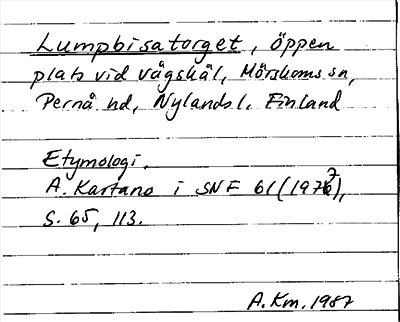 Lumpbisatorget, öppen
plats vid vägskäl, Mörskoms sn,
Pernå hd, Nylands l. Finland
Etymologi.
A. Kartano i SNF 61 (1977),
s. 65, 113.
A.Km. 1987